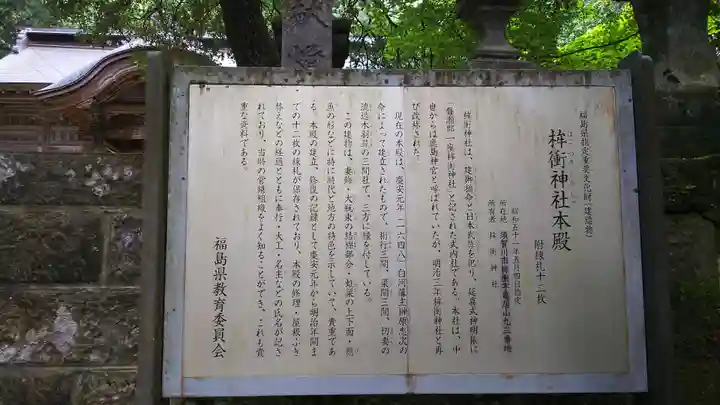 献燈
福島県指定重要文化財(建造物)
桙衝神社本殿
附棟札十二枚
昭和五十一年五月四日指定
所在地 須賀川市桙衝字亀居山九三番地
所有者 桙衝神社
桙衝神社は、建御雷命と日本武尊を祀り、延喜式神明帳に
「磐瀬郡一座桙衝神社」と記された式内社である。本社は、中
世からは鹿島神宮と呼ばれていたが、明治三年桙衝神社と再
び改称された。
現在の本殿は、慶安元年(一六四八)白河藩主榊原忠次の
命によって建立されたもので、桁行三間、梁間三間、切妻の
流造木羽葺の三間社で、三方に縁を付している。
この建物は、妻飾・大瓶束の結綿部分・虹梁の上下面・懸
魚の形などに特に時代と地方の特色を示していて、貴重であ
る。本殿の建立、修復の記録として慶安元年から明治年間ま
での十二枚の棟札が保存されており、本殿の修理・屋根ふき
替えなどの経過とともに奉行・大工・名主などの氏名が記さ
れており、当時の営繕組織をよく知ることができ、これも貴
重な資料である。
福島県教育委員会